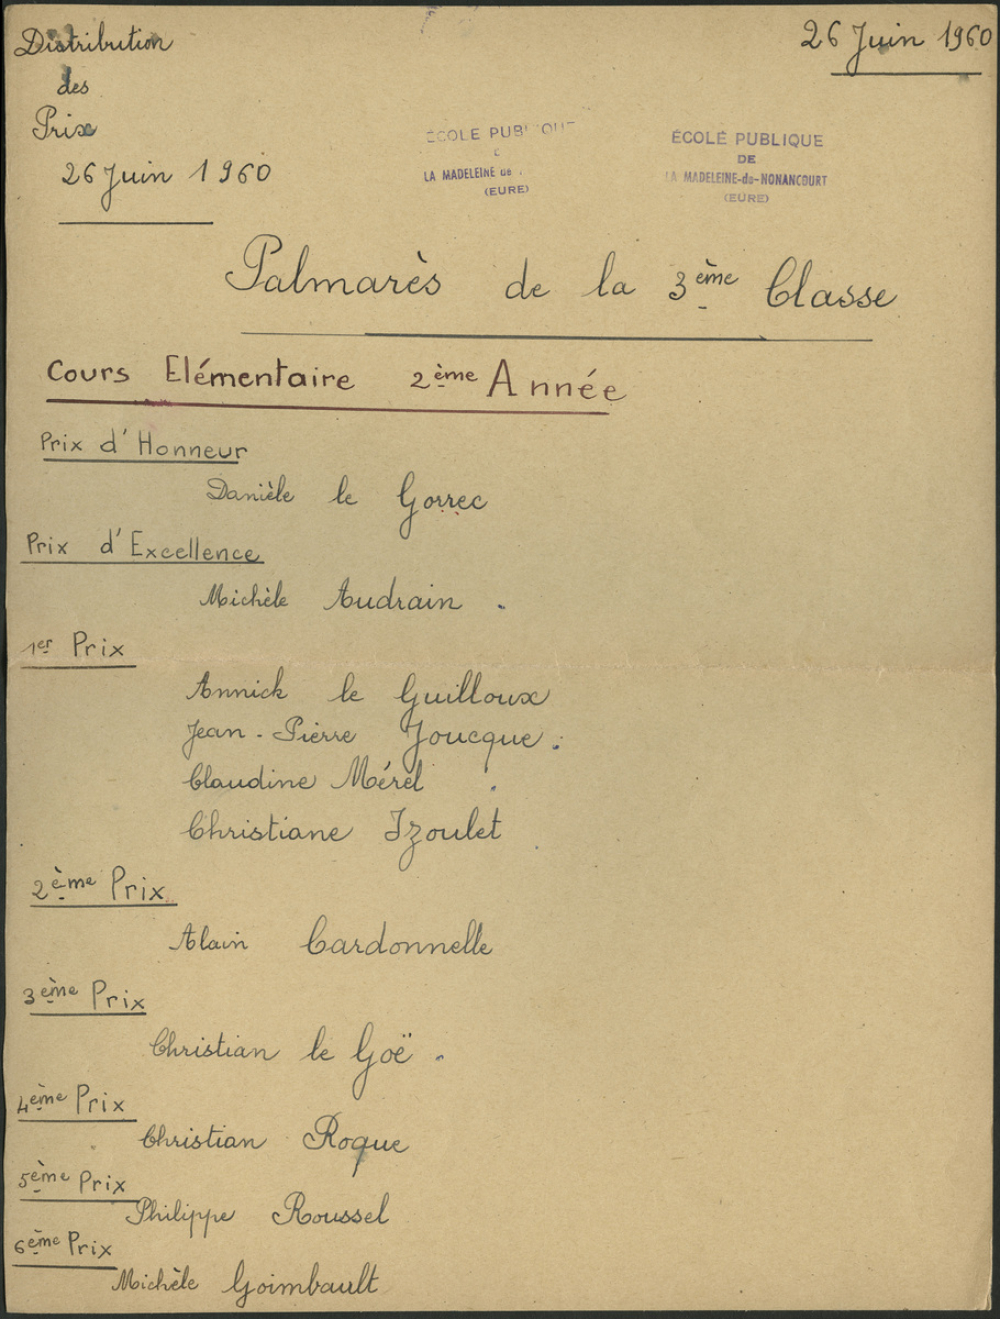 Distribution
des
Prix
26 Juin 1960
26 Juin 1960
ÉCOLE
LA MADELEINE de
(EURE)
ÉCOLE PUBLIQUE
DE
LA MADELEINE-de-NONANCOURT
(EURE)
Palmarès de la 3ème Classe
Cours Elémentaire 2ème Année
Prix d'Honneur
Danièle le Gorrec
Prix d'Excellence
Michèle Audrain .
1er Prix
Annick le Guilloux
Jean-Pierre Joucque.
Claudine Mérel
Christiane Izoulet
2ème Prix
Alain Cardonnelle
3ème Prix
Christian le Goë .
4ème Prix
Christian Roque
5ème Prix
Philippe Roussel
6ème Prix
Michèle Goimbault